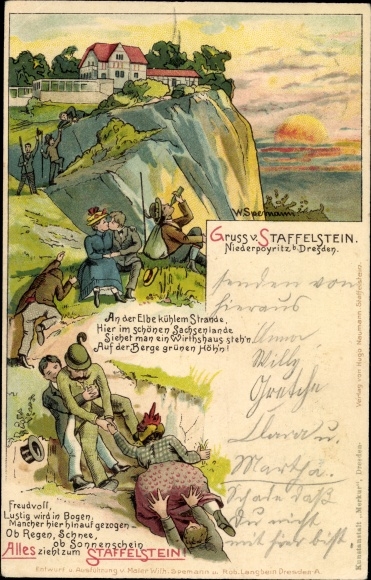 W. Spemann
Gruss v. STAFFELSTEIN.
Niederpoyritz b. Dresden.
An der Elbe kühlem Strande,
Hier im schönen Sachsenlande
Siehet man ein Wirthshaus steh'n
Auf der Berge grünen Höh'n!
senden von
hieraus
Willy
Grethe
Clara u.
Martha.
Schade daß
Du nicht
mit hier bist
Freudvoll,
Lustig wird in Bogen,
Mancher hier hinauf gezogen –
Ob Regen, Schnee,
ob Sonnenschein
Alles zieht zum STAFFELSTEIN!
Entwurf u. Ausführung v. Maler Wilh. Spemann u. Rob. Langbein Dresden-A.
Kunstanstalt "Merkur", Dresden.
Verlag von Hugo Neumann Staffelstein.